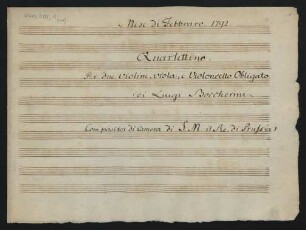 Mese di Febbraro 1792
Quartettino
Per due Violini, Viola, e Violoncello Obligato
di Luigi Boccherini
Compositor di Camera di S. M. il Re di Prussia